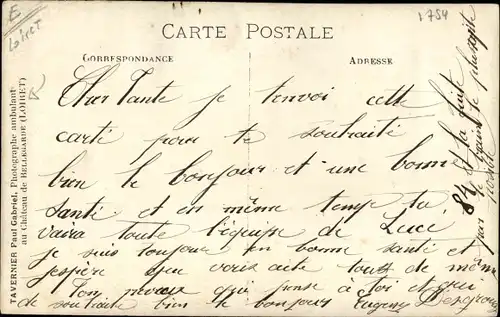 E
Loiret
1754
CARTE POSTALE
CORRESPONDANCE
ADRESSE
TAVERNIER Paul Gabriel, Photographe ambulant
au Château de BELLEGARDE (LOIRET)
Cher Tante je tenvoi cette
carti pour te soutraiti
bien le bonjour et une bonne
santi et en même temp tu
vaira toute l'équipe de Lucé
je suis toujour en bonne santi et
jespère que vous aite tous de même
Ton neveux qui pense a toi et qui
de soutraite bien le bonjour Eugene
et la suite